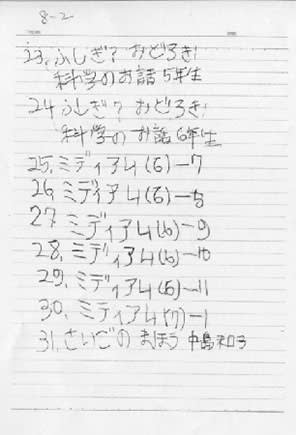 8-2
23. ふしぎ? おどろき!
科学のお話 5年生
24 ふしぎ? おどろき!
科学の お話 6年生
25, ミディアム(6)-7
26, ミディアム(6)-8
27 ミディアム(6)-9
28, ミディアム(6)-10
29, ミディアム(6)-11
30, ミディアム(7)-1
31, さいごの まほう 中島和子